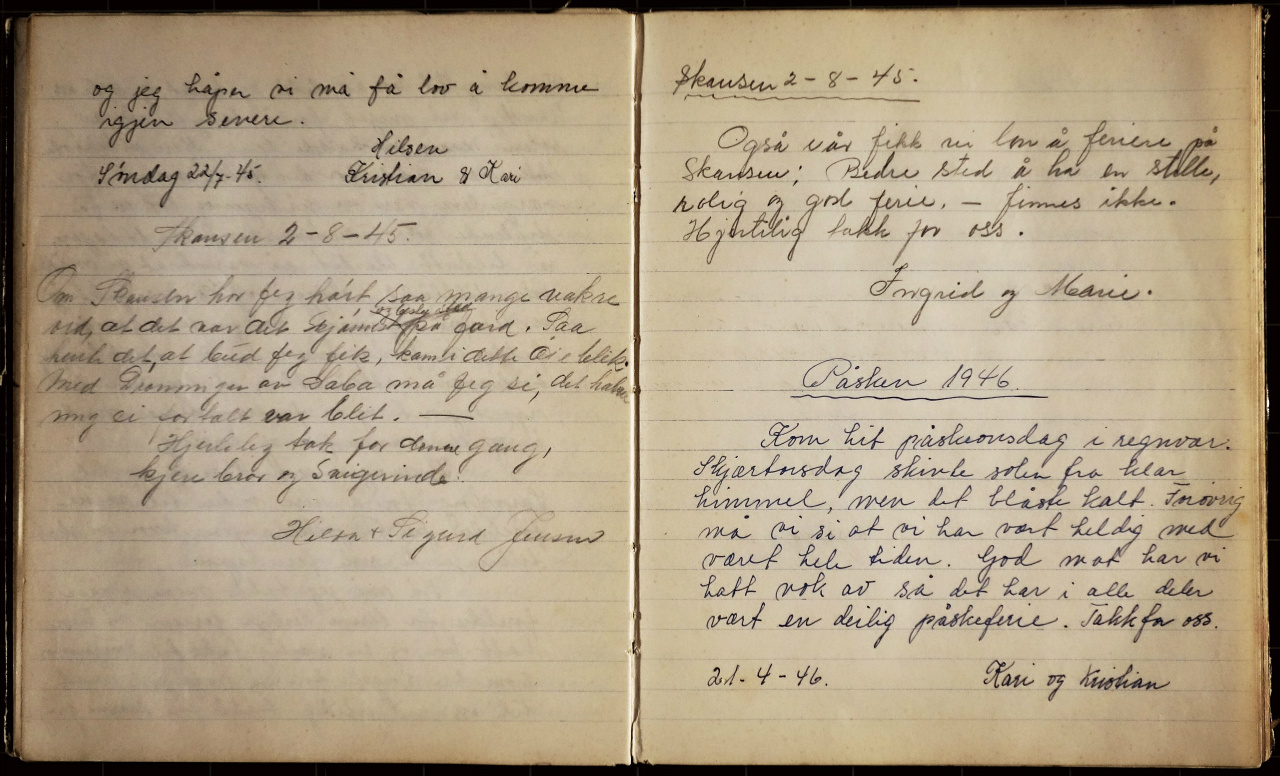 og jeg håper vi må få lov å komme
igjen senere.
Hilsen
Søndag 22/7-45. Kristian & Kari
Skansen 2-8-45.
Om Skansen har jeg hørt saa mange vakre
ord, at det var det skjønneste på jord. Saa
hendte det, at bud jeg fik, kom i dette øieblik.
Med Dronningen av Saba må jeg si, det halve
mig ei fortalt var blit. —
Hjertelig tak for denne gang,
kjere bror og Svigerinde.
Sigurd Jensen
Skansen 2-8-45.
Også i år fikk vi lov å feriere på
Skansen; Bedre sted å ha en stille,
rolig og god ferie, — finnes ikke.
Hjertelig takk for oss.
Ingrid og Marie.
Påsken 1946.
Kom hit påskeonsdag i regnvær.
Skjærtorsdag skinte solen fra klar
himmel, men det blåste kalt. Forøvrig
må vi si at vi har vært heldig med
været hele tiden. God mat har vi
hatt nok av så det har i alle deler
vært en deilig påskeferie. Takk for oss.
21-4-46. Kari og Kristian